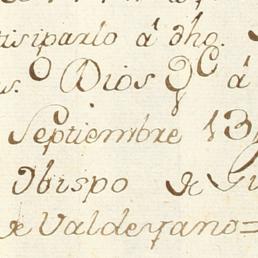 tisiparlo á dho.
s.º Dios q.e á
Septiembre 13
Obispo de
de Valdeyano=